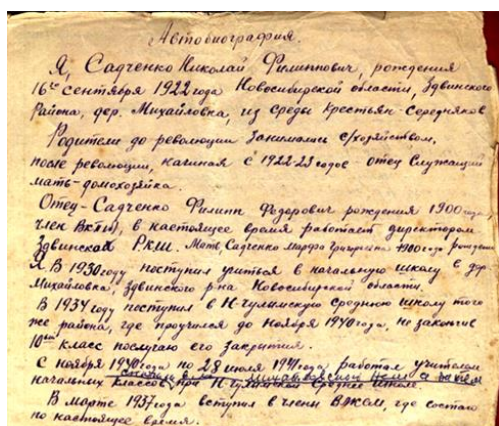 Автобиография.
Я, Садченко Николай Филиппович, рождения
16го сентября 1922 года Новосибирской области, Здвинского
Района, дер. Михайловка, из среды Крестьян-Середняков
Родители до революции занимались с/хозяйством,
после революции, начиная с 1922-23 годов - отец Служащий
мать-домохозяйка.
Отец-Садченко Филипп Федорович рождения 1900 года,
член ВКП(б), в настоящее время работает директором
Здвинской РКШ. Мать, Садченко Марфа Григорьевна 1900 года рождения
Я В 1930 году поступил учиться в начальную школу в дер.
Михайловка, Здвинского р-на Новосибирской области.
В 1937 году поступил в Н-Чулымскую среднюю школу того
же района, где проучился до ноября 1940 года, не закончив
10ый класс послучаю его закрытия.
С ноября 1940 года по 28 июля 1941 года, работал учителем
начальных классов, при Н-Чулымской средней школе.
В марте 1937 года вступил в члены ВЛКСМ, где состою
по настоящее время.